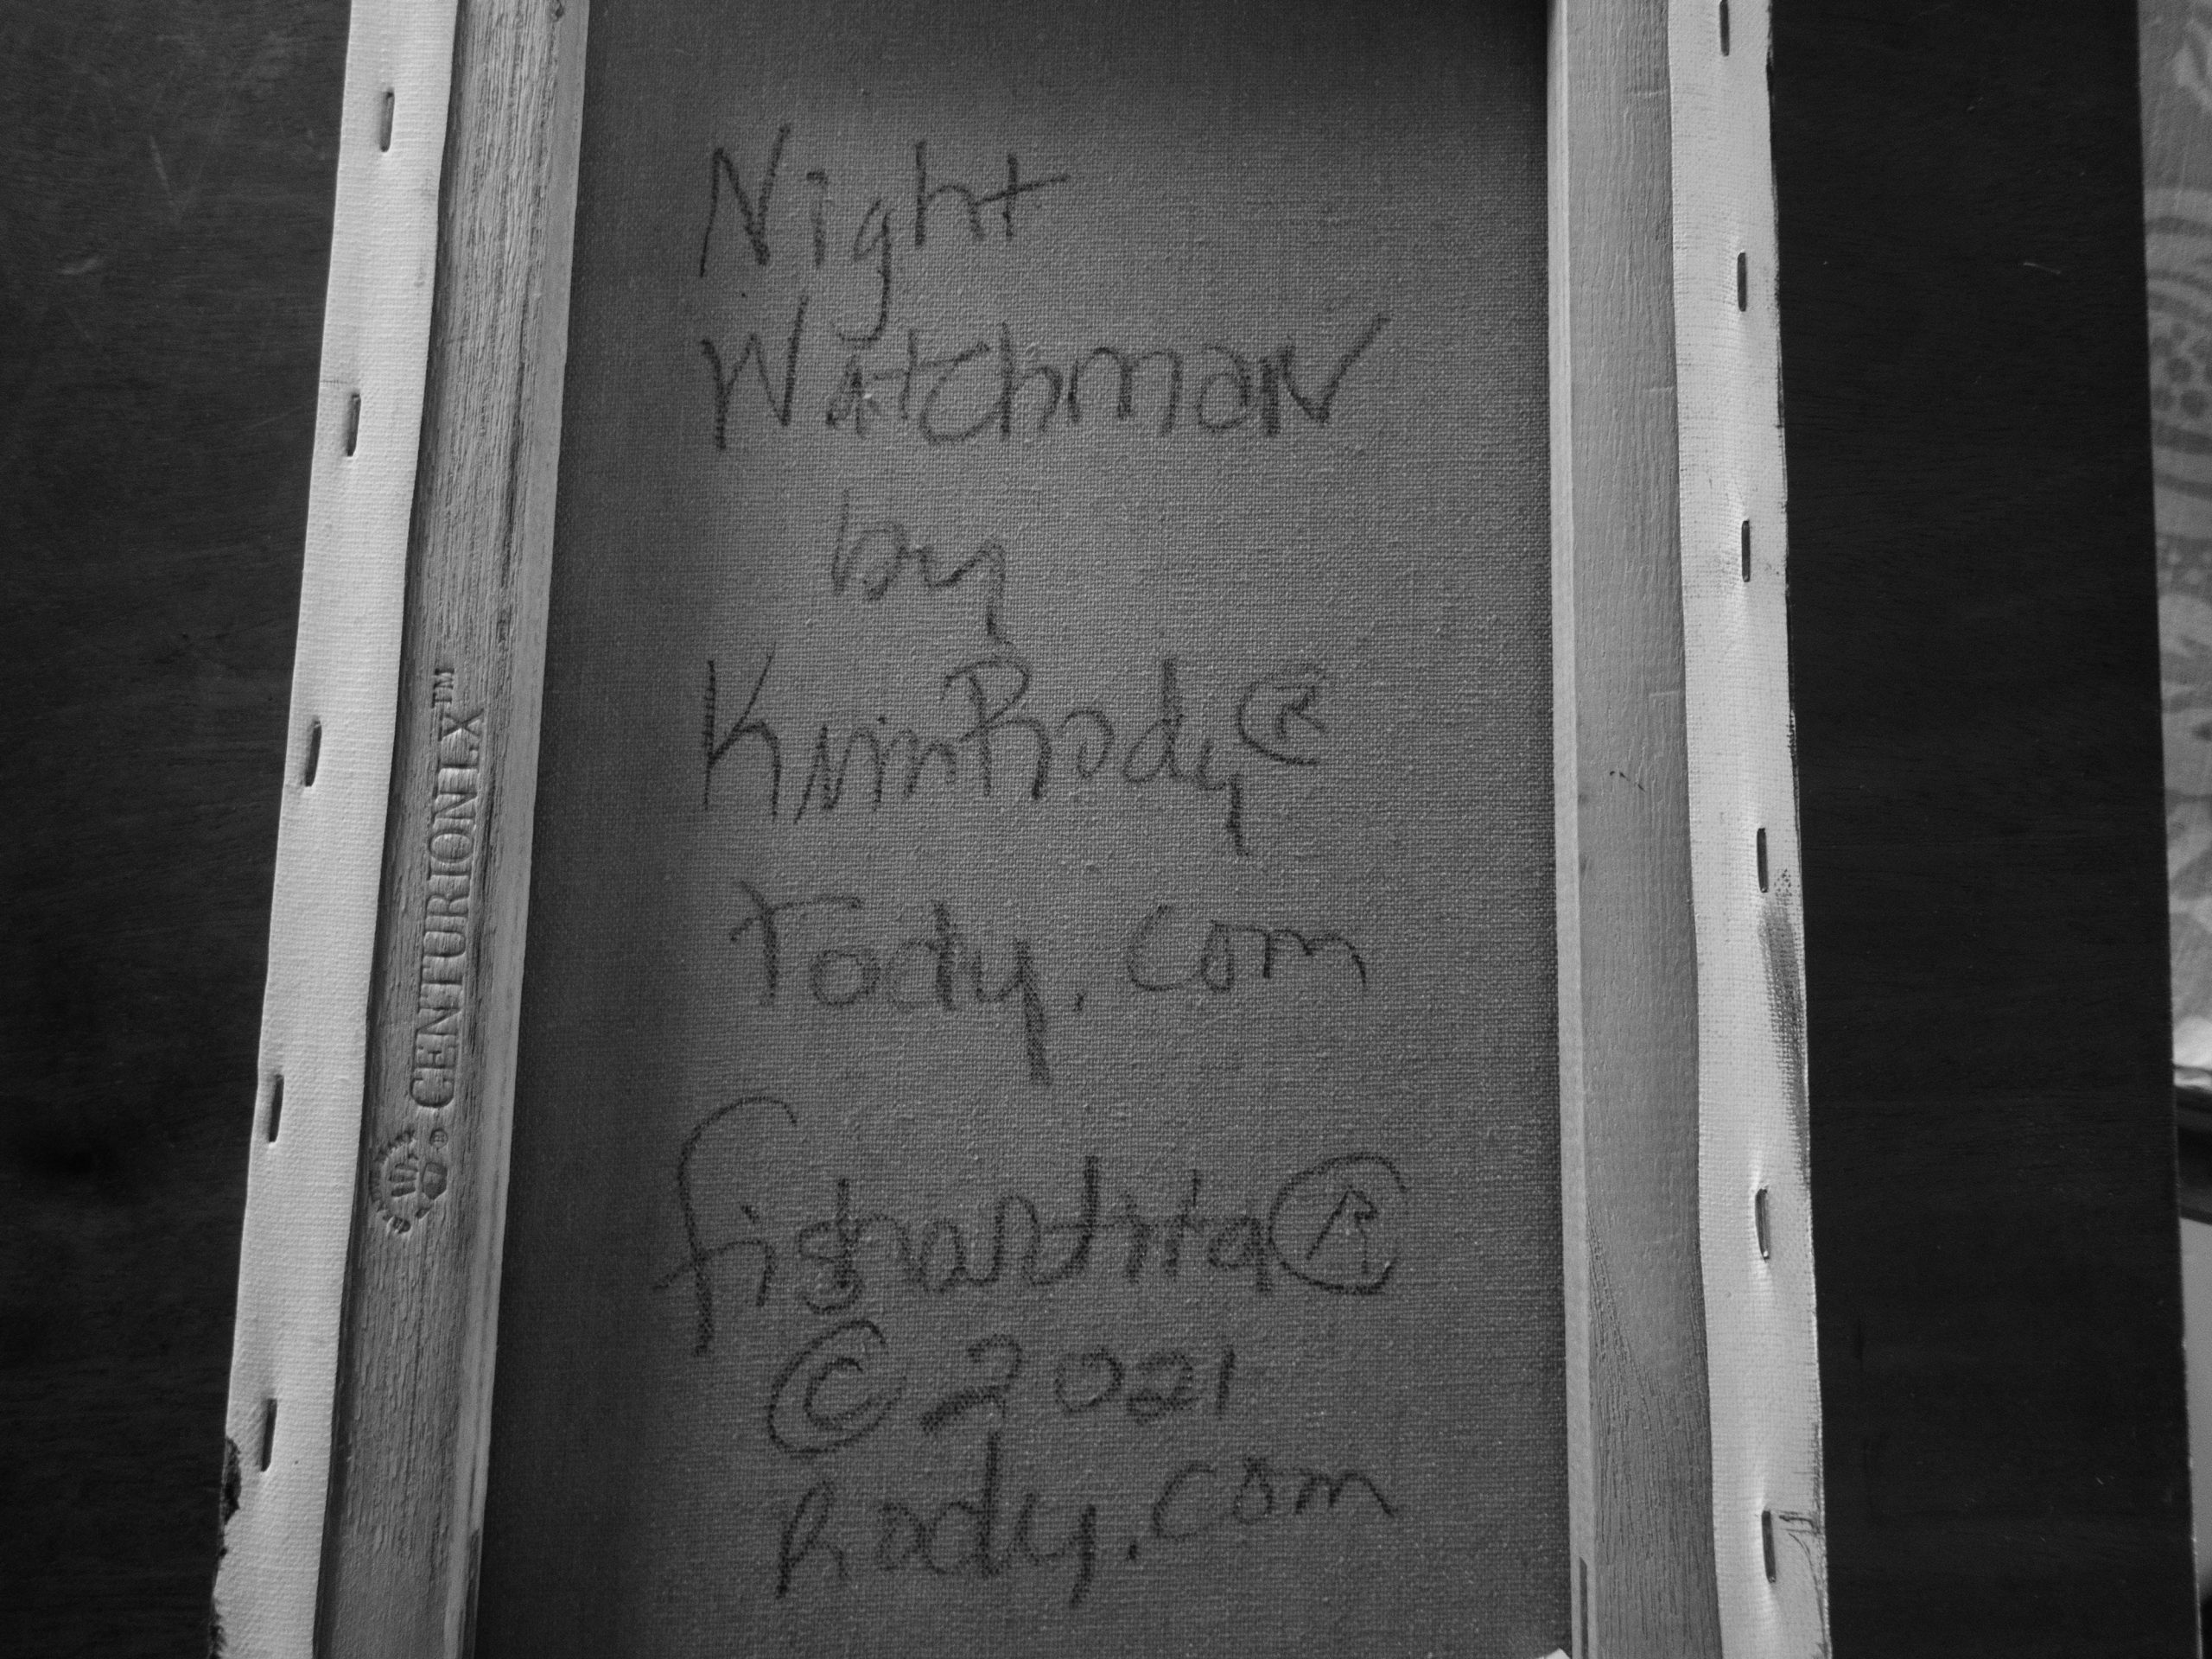 Night
Watchman
by
KimRody®
rody.com
fishartista®
© 2021
Rody.com
CENTURIONLX™